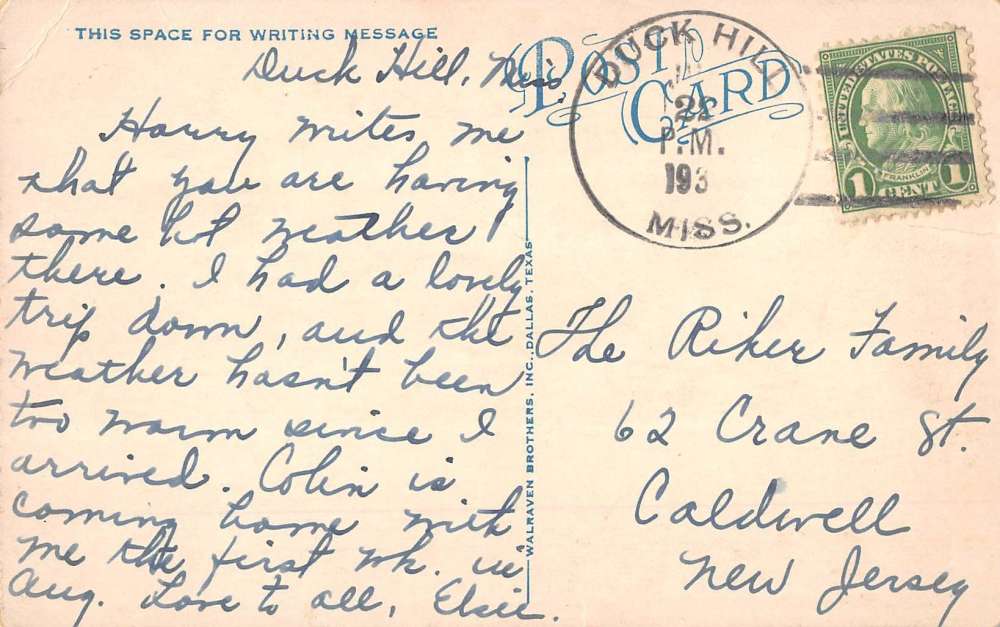 THIS SPACE FOR WRITING MESSAGE
Duck Hill, Miss.
Harry writes me
that you are having
some hot weather
there. I had a lovely
trip down, and the
weather hasn't been
too warm since I
arrived. Colin is
coming home with
me the first wk. in
Aug. Love to all, Elsie.
POST CARD
DUCK HILL
P.M.
193
MISS.
UNITED STATES POSTAGE
FRANKLIN
1 CENT 1
WALRAVEN BROTHERS, INC., DALLAS, TEXAS
The Riker Family
62 Crane St.
Caldwell
New Jersey